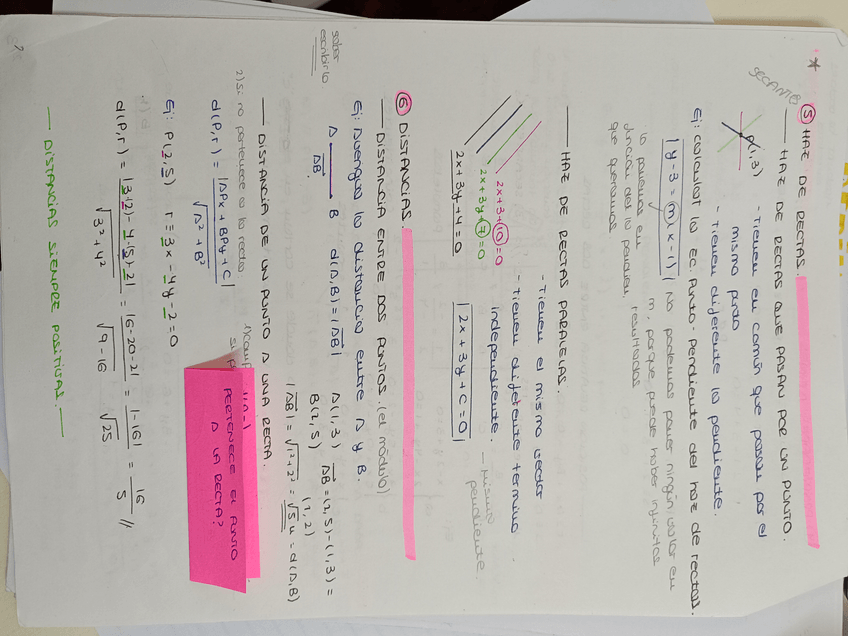 *
SECANTES
5 HAZ DE RECTAS.
— HAZ DE RECTAS QUE PASAN POR UN PUNTO.
P(1,3)
- Tienen en común que pasan por el
mismo punto
- Tienen diferente la pendiente.
Ej: calcular la EC. Punto-Pendiente del haz de rectas.
|y-3 = m(x-1)|
No podemos poner ningún valor en
m, porque puede haber infinitos
resultados
la pendiente
que queramos
— HAZ DE RECTAS PARALELAS.
- Tienen el mismo vector
- Tienen diferente término
independiente.
- Misma
pendiente.
2x+3y+10=0
2x+3y+7=0
2x+3y+4=0
|2x+3y+C=0|
6 DISTANCIAS.
— DISTANCIA ENTRE DOS PUNTOS. (el módulo)
saber
escribirlo
A B d(A,B)=|AB|
AB
A(1,3) AB=(2,5)-(1,3)=
B(2,5) (1,2)
Ej: Averigua la distancia entre A y B.
|AB|=√1²+2²=√5 u = d(A,B)
— DISTANCIA DE UN PUNTO A UNA RECTA.
2) Si no pertenece a la recta
d(P,r) = |APx + BPy + C| / √A²+B²
PERTENECE EL PUNTO
A LA RECTA?
Ej: P(2,5) r≡3x-4y-2=0
d(P,r) = |3·(2)-4·(5)-2| / √3²+4² = |6-20-2| / √9-16 = |-16| / √25 = 16 / 5 //
— DISTANCIAS SIEMPRE POSITIVAS. —